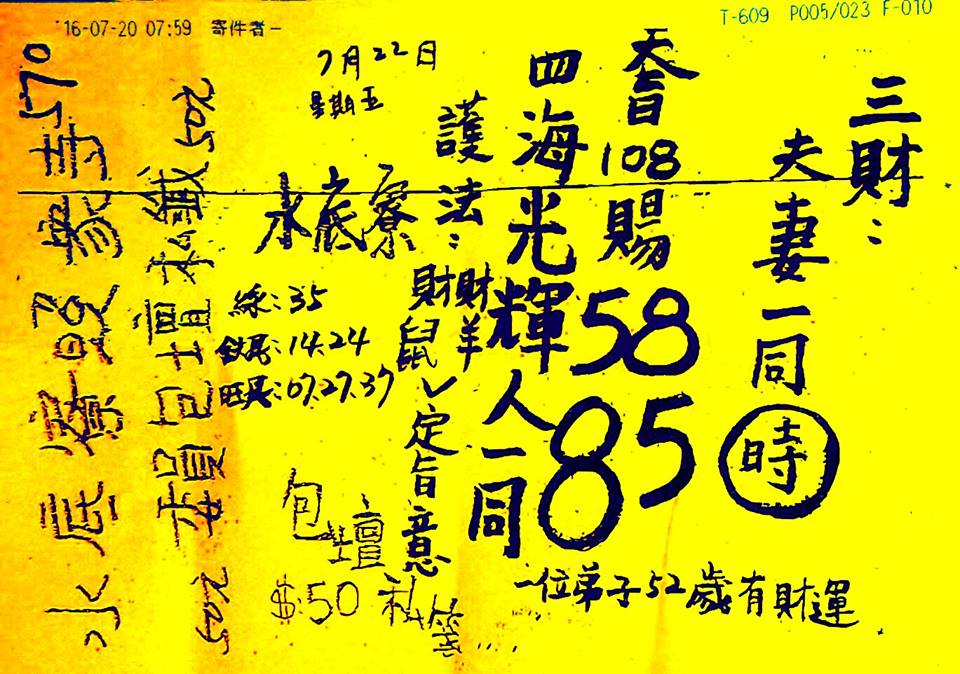 '16-07-20 07:59 寄件者-
T-609 P005/023 F-010
三財:
夫妻一同時
108賜
58
85
四海光輝人一同
護法:
財財
鼠羊
✓定旨意
一位弟子52歲有財運
7月22日
星期五
水底寮
線:35
:14.24
旺尾:07.27.37
包壇
$:50 私簽
水底寮
570
包壇
50元
50元